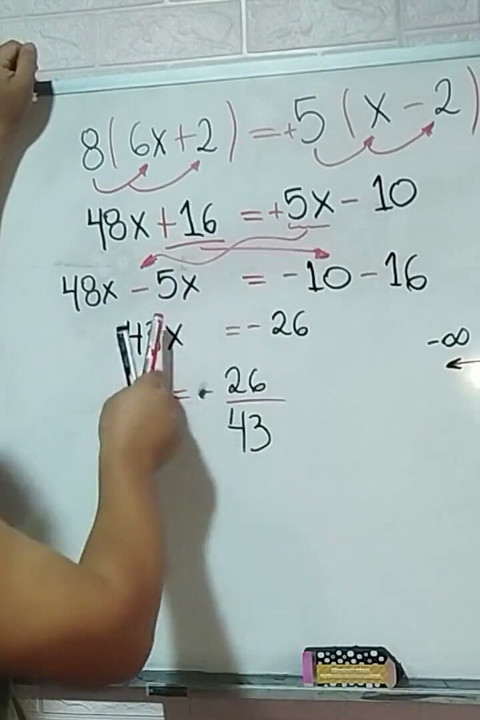 8(6x+2)=+5(x-2)
48x+16=+5x-10
48x-5x=-10-16
43x=-26
=-26/43
-∞